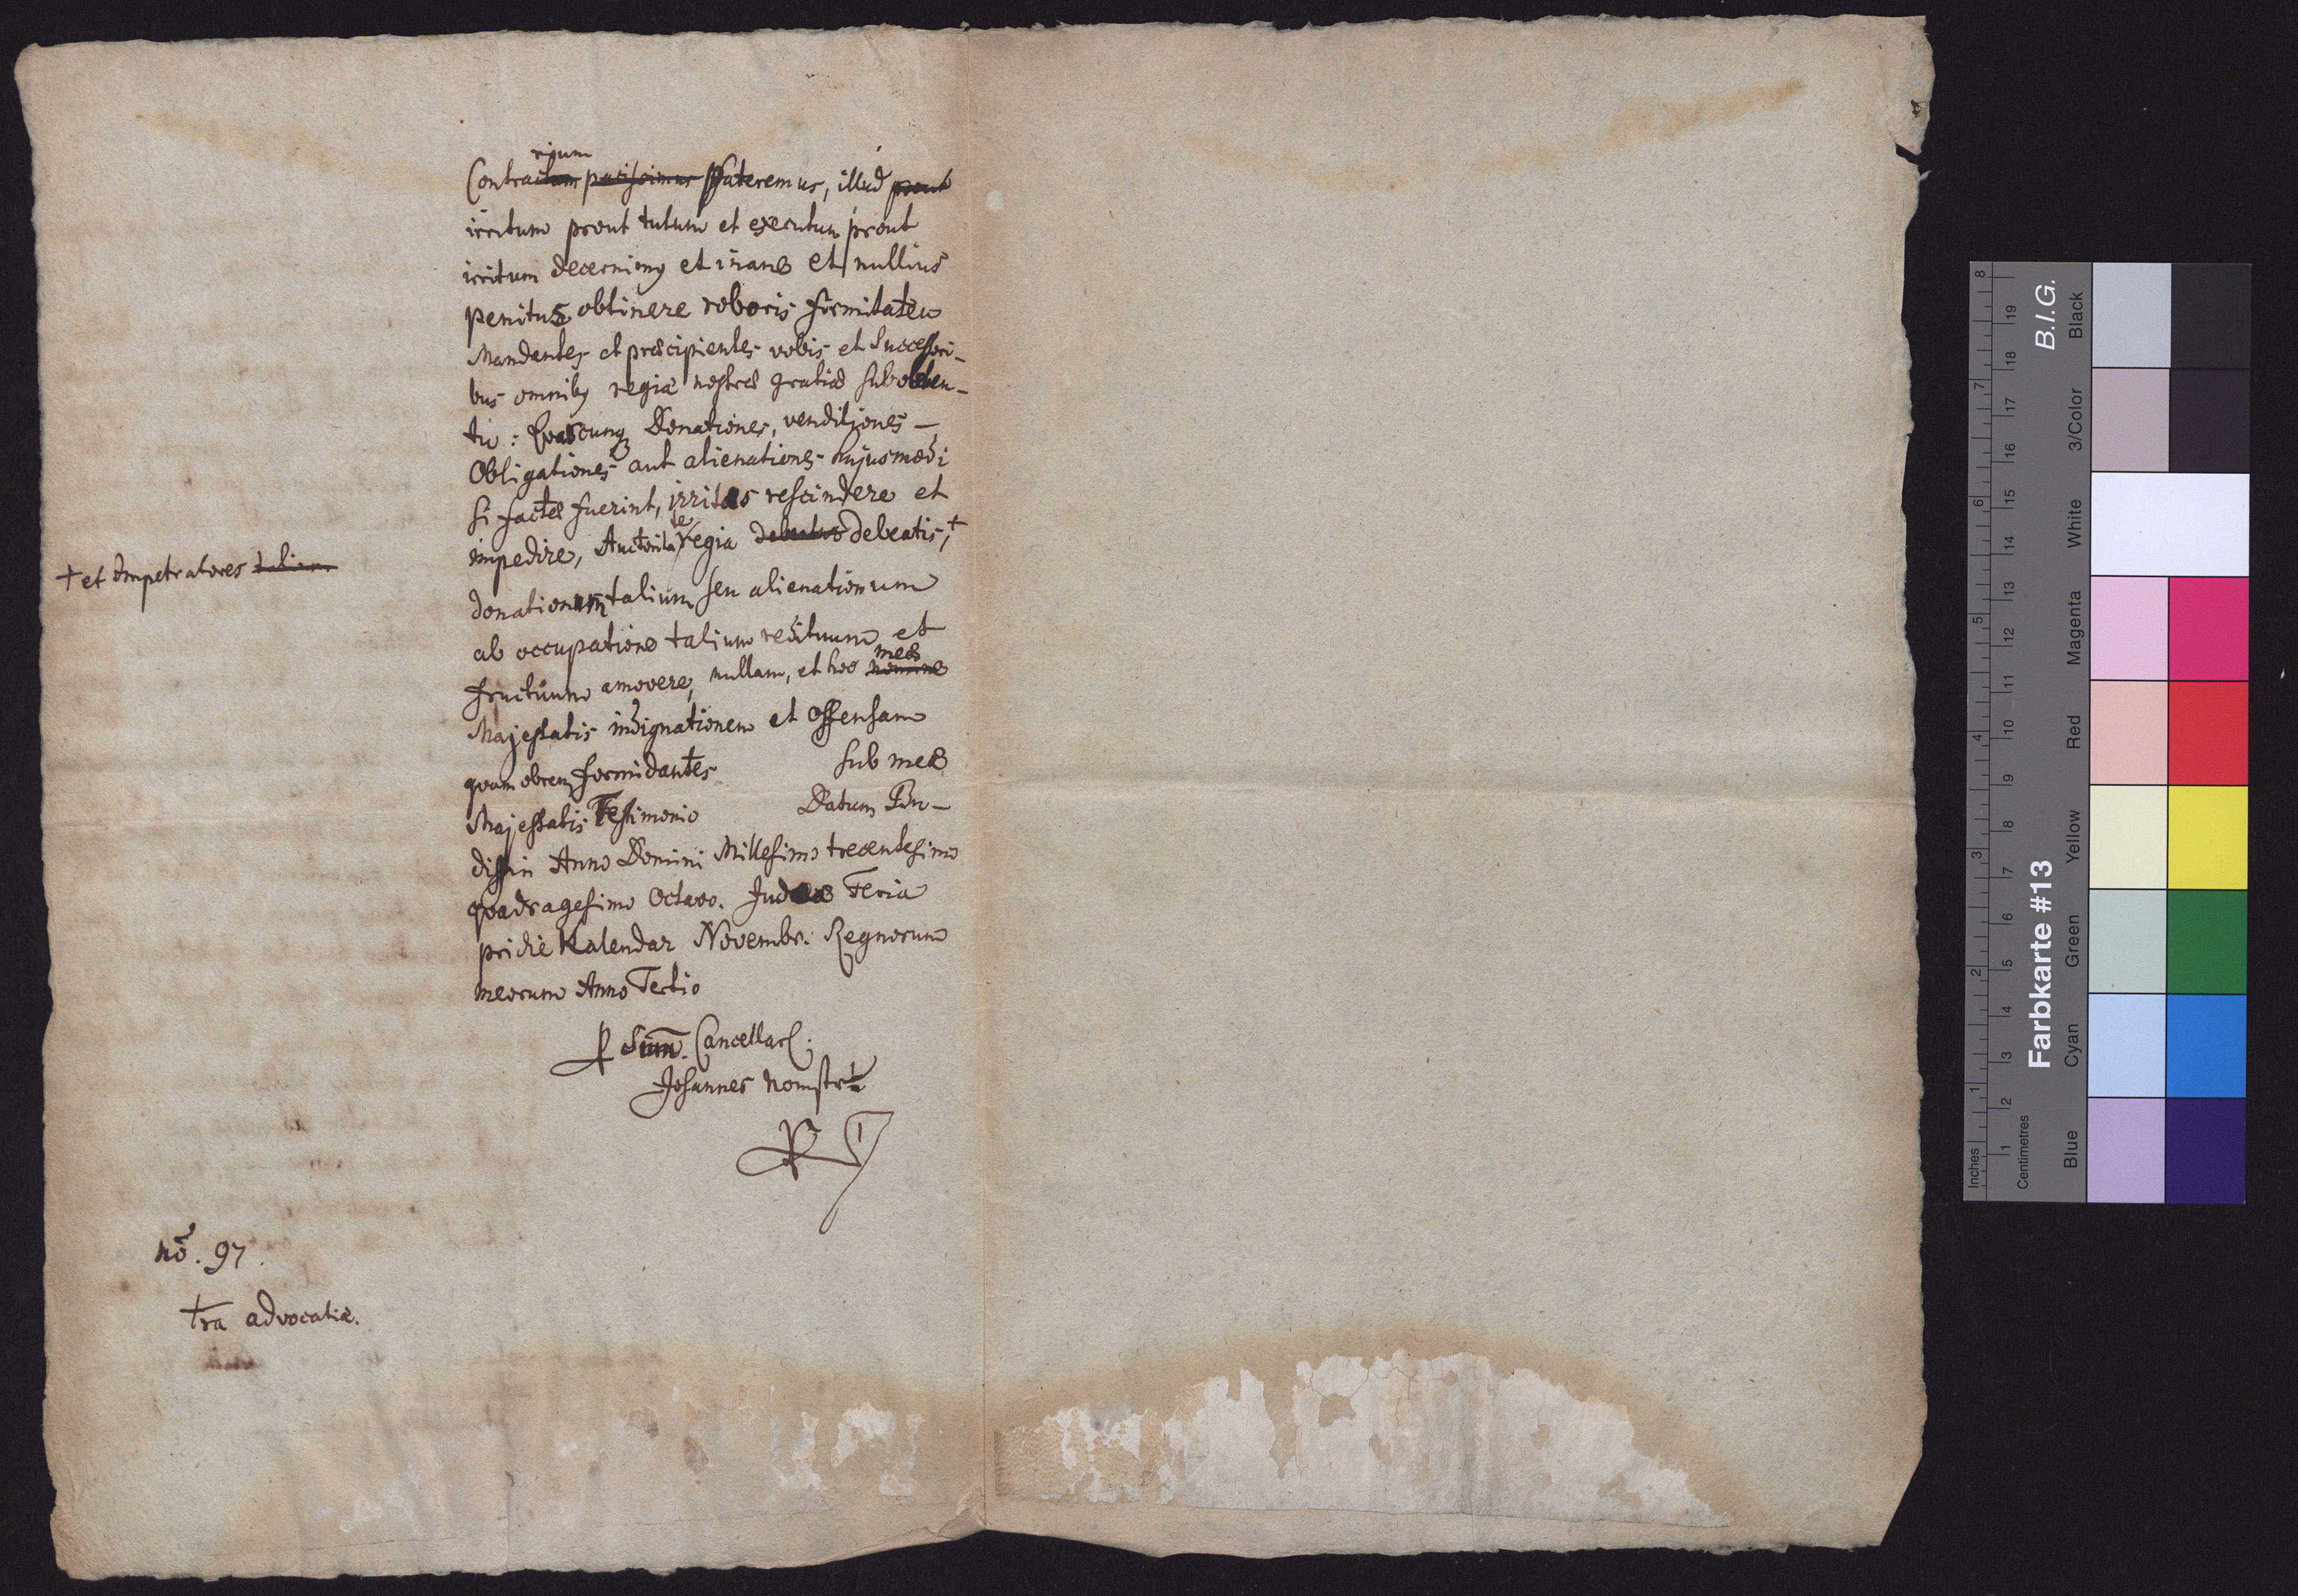 rium
Contractum patissimus pateremus, illud prout
irritum prout tutum et executum prout
irritum decernimq et inane et nullius
penitus obtinere roboris firmitatem
Mandantes et præcipientes vobis et Successori-
bus omnibq regiæ nostræ gratiæ sub obten-
tu: Quascunq Donationes, venditiones —
Obligationes aut alienationes hujusmodi
si factæ fuerint, irritas rescindere et
impedire, Auctoritate regia debeatis, +
+ et Impetratores talium
donationum talium seu alienationum
ab occupatione talium redituum et
fructuum amovere, nullam, et hoc nomine meæ
Majestatis indignationem et Offensam
quam obrem formidantes sub meæ
Majestatis Testimonio Datum Bu-
dissin Anno Domini Millesimo trecentesimo
quadragesimo Octavo. Feria
pridie Kalendar Novembr: Regnorum
meorum Anno Tertio
Cancellar:
Johannes
nõ. 97.
tra advocatiæ.
Inches
Centimetres
1 2 3 4 5 6 7 8
1 2 3 4 5 6 7 8 9 10 11 12 13 14 15 16 17 18 19
Farbkarte #13
B.I.G.
Blue Cyan Green Yellow Red Magenta White 3/Color Black